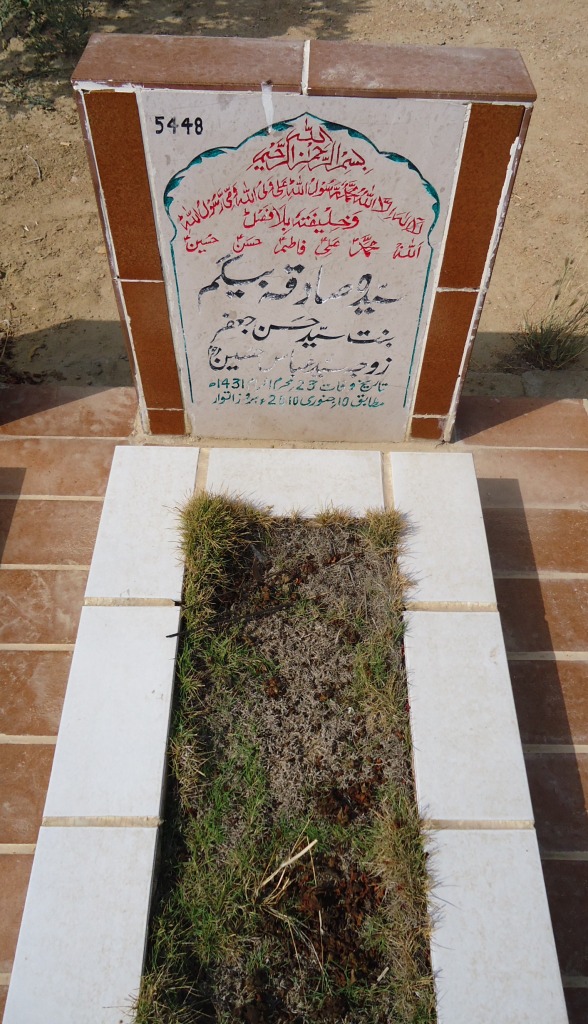 5448
بسم اللہ الرحمن الرحیم
لا الہ الا اللہ محمد رسول اللہ علی ولی اللہ وصی رسول اللہ
وخلیفتہ بلا فصل
اللہ محمدؐ علیؑ فاطمہؑ حسنؑ حسینؑ
سیدہ صادقہ بیگم
بنت سید حسن جعفر
زوجہ سید عباس حسین
تاریخ وفات 23 محرم الحرام 1431ھ
مطابق 10 جنوری 2010ء بروز اتوار